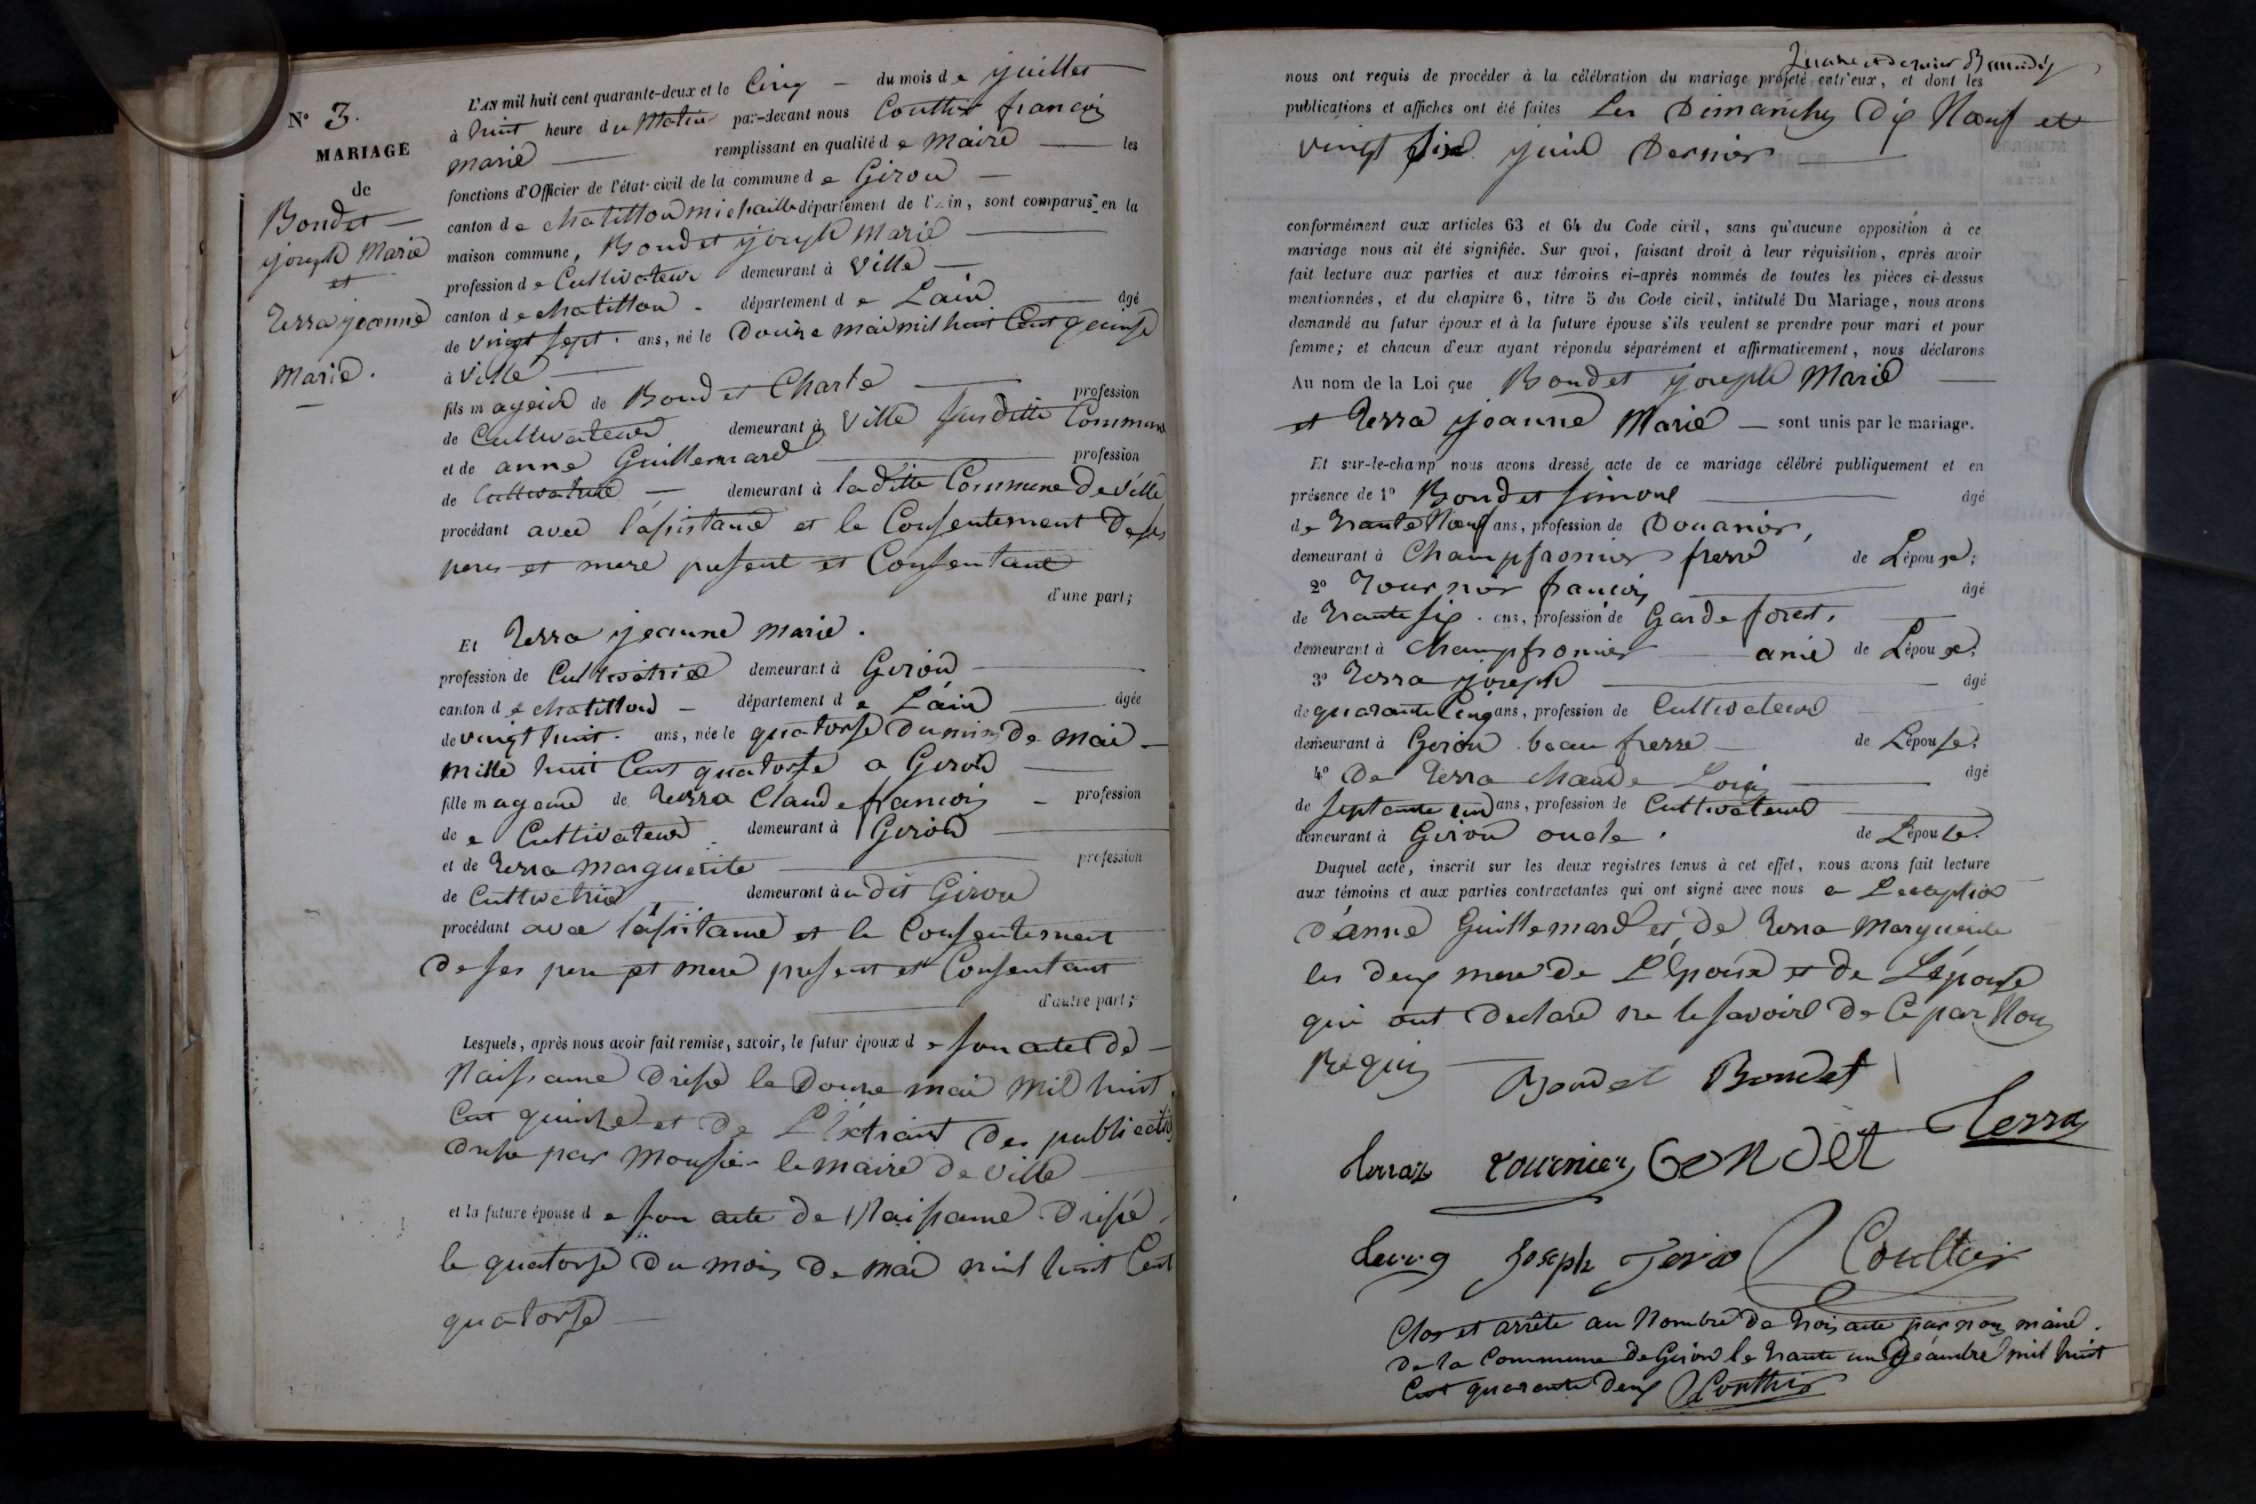 N° 3.
MARIAGE
de
Bondet
joseph Marie
et
Terra jeanne
Marie.
L'AN mil huit cent quarante-deux et le Cinq du mois de juillet
à huit heure du Matin par-devant nous Couttier francois
marie remplissant en qualité de Maire les
fonctions d'Officier de l'état-civil de la commune de Giron
canton de chatillon michaille département de l'Ain, sont comparus en la
maison commune, Bondet joseph Marie
profession de Cultivateur demeurant à Ville
canton de chatillon département de Lain âgé
de vingt sept. ans, né le Douze mai mil huit Cent quinse
à Ville
fils mageur de Bondet Charle profession
de Cultivateur demeurant à Ville susditte Commune
et de anne Guillemard profession
de Cultivatrice demeurant à laditte Commune de Ville
procédant avec l'assistance et le Consentement de ses
peres et mere present et Consentant
d'une part;
Et Terra jeanne marie.
profession de Cultivatrice demeurant à Giron
canton de chatillon département de Lain âgée
de vingt huit. ans, née le quatorse du mois de mai
mille huit Cent quatorse a Giron
fille mageure de Terra Claude francois profession
de e Cultivateur demeurant à Giron
et de Terra Marguerite profession
de Cultivatrice demeurant audit Giron
procédant avec l'assistance et le Consentement
de ses pere et mere present et Consentant
d'autre part;
Lesquels, après nous avoir fait remise, savoir, le futur époux de son acte de
Naissance drissé le Douze mai Mil huit
Cent quinse et de L'Extrait des publication
drissé par Monsieur le maire de Ville
et la future épouse de son acte de Naissance drissé
le quatorse du mois de mai mil huit Cent
quatorse
nous ont requis de procéder à la célébration du mariage projeté entr'eux, et dont les
publications et affiches ont été faites Les Dimanches Dix Nœuf et
vingt six juin Dernier
conformément aux articles 63 et 64 du Code civil, sans qu'aucune opposition à ce
mariage nous ait été signifiée. Sur quoi, faisant droit à leur réquisition, après avoir
fait lecture aux parties et aux témoins ci-après nommés de toutes les pièces ci-dessus
mentionnées, et du chapitre 6, titre 5 du Code civil, intitulé Du Mariage, nous avons
demandé au futur époux et à la future épouse s'ils veulent se prendre pour mari et pour
femme; et chacun d'eux ayant répondu séparément et affirmativement, nous déclarons
Au nom de la Loi que Bondet joseph Marie
et Terra jeanne Marie sont unis par le mariage.
Et sur-le-champ nous avons dressé acte de ce mariage célébré publiquement et en
présence de 1° Bondet simond âgé
de trante Nœuf ans, profession de Douanier,
demeurant à Champfromier frere de Lépouse;
2° Tournier francois âgé
de trante six. ans, profession de Garde forest.
demeurant à Champfromier amie de Lépouse;
3° Terra joseph âgé
de quarante Cinq ans, profession de Cultivateur
demeurant à Giron beau frerre de Lépouse;
4° De Terra Claude Loui âgé
de septante un ans, profession de Cultivateur
demeurant à Giron oncle. de Lépouse.
Duquel acte, inscrit sur les deux registres tenus à cet effet, nous avons fait lecture
aux témoins et aux parties contractantes qui ont signé avec nous a Lexception
D'anne Guillemard et de Terra Marguerite
les deux mere de L'Époux et de Lépouse
qui ont declaré ne le savoir de Ce par Nous
Requis
Bondet Bondet
Terra
Terraz tournier GONDET
Joseph Coultier
Clos et arrêté au Nombre de trois acte par nous maire
de la Commune de Giron le trante un décembre mil huit
Cent quarante deux Coutthier